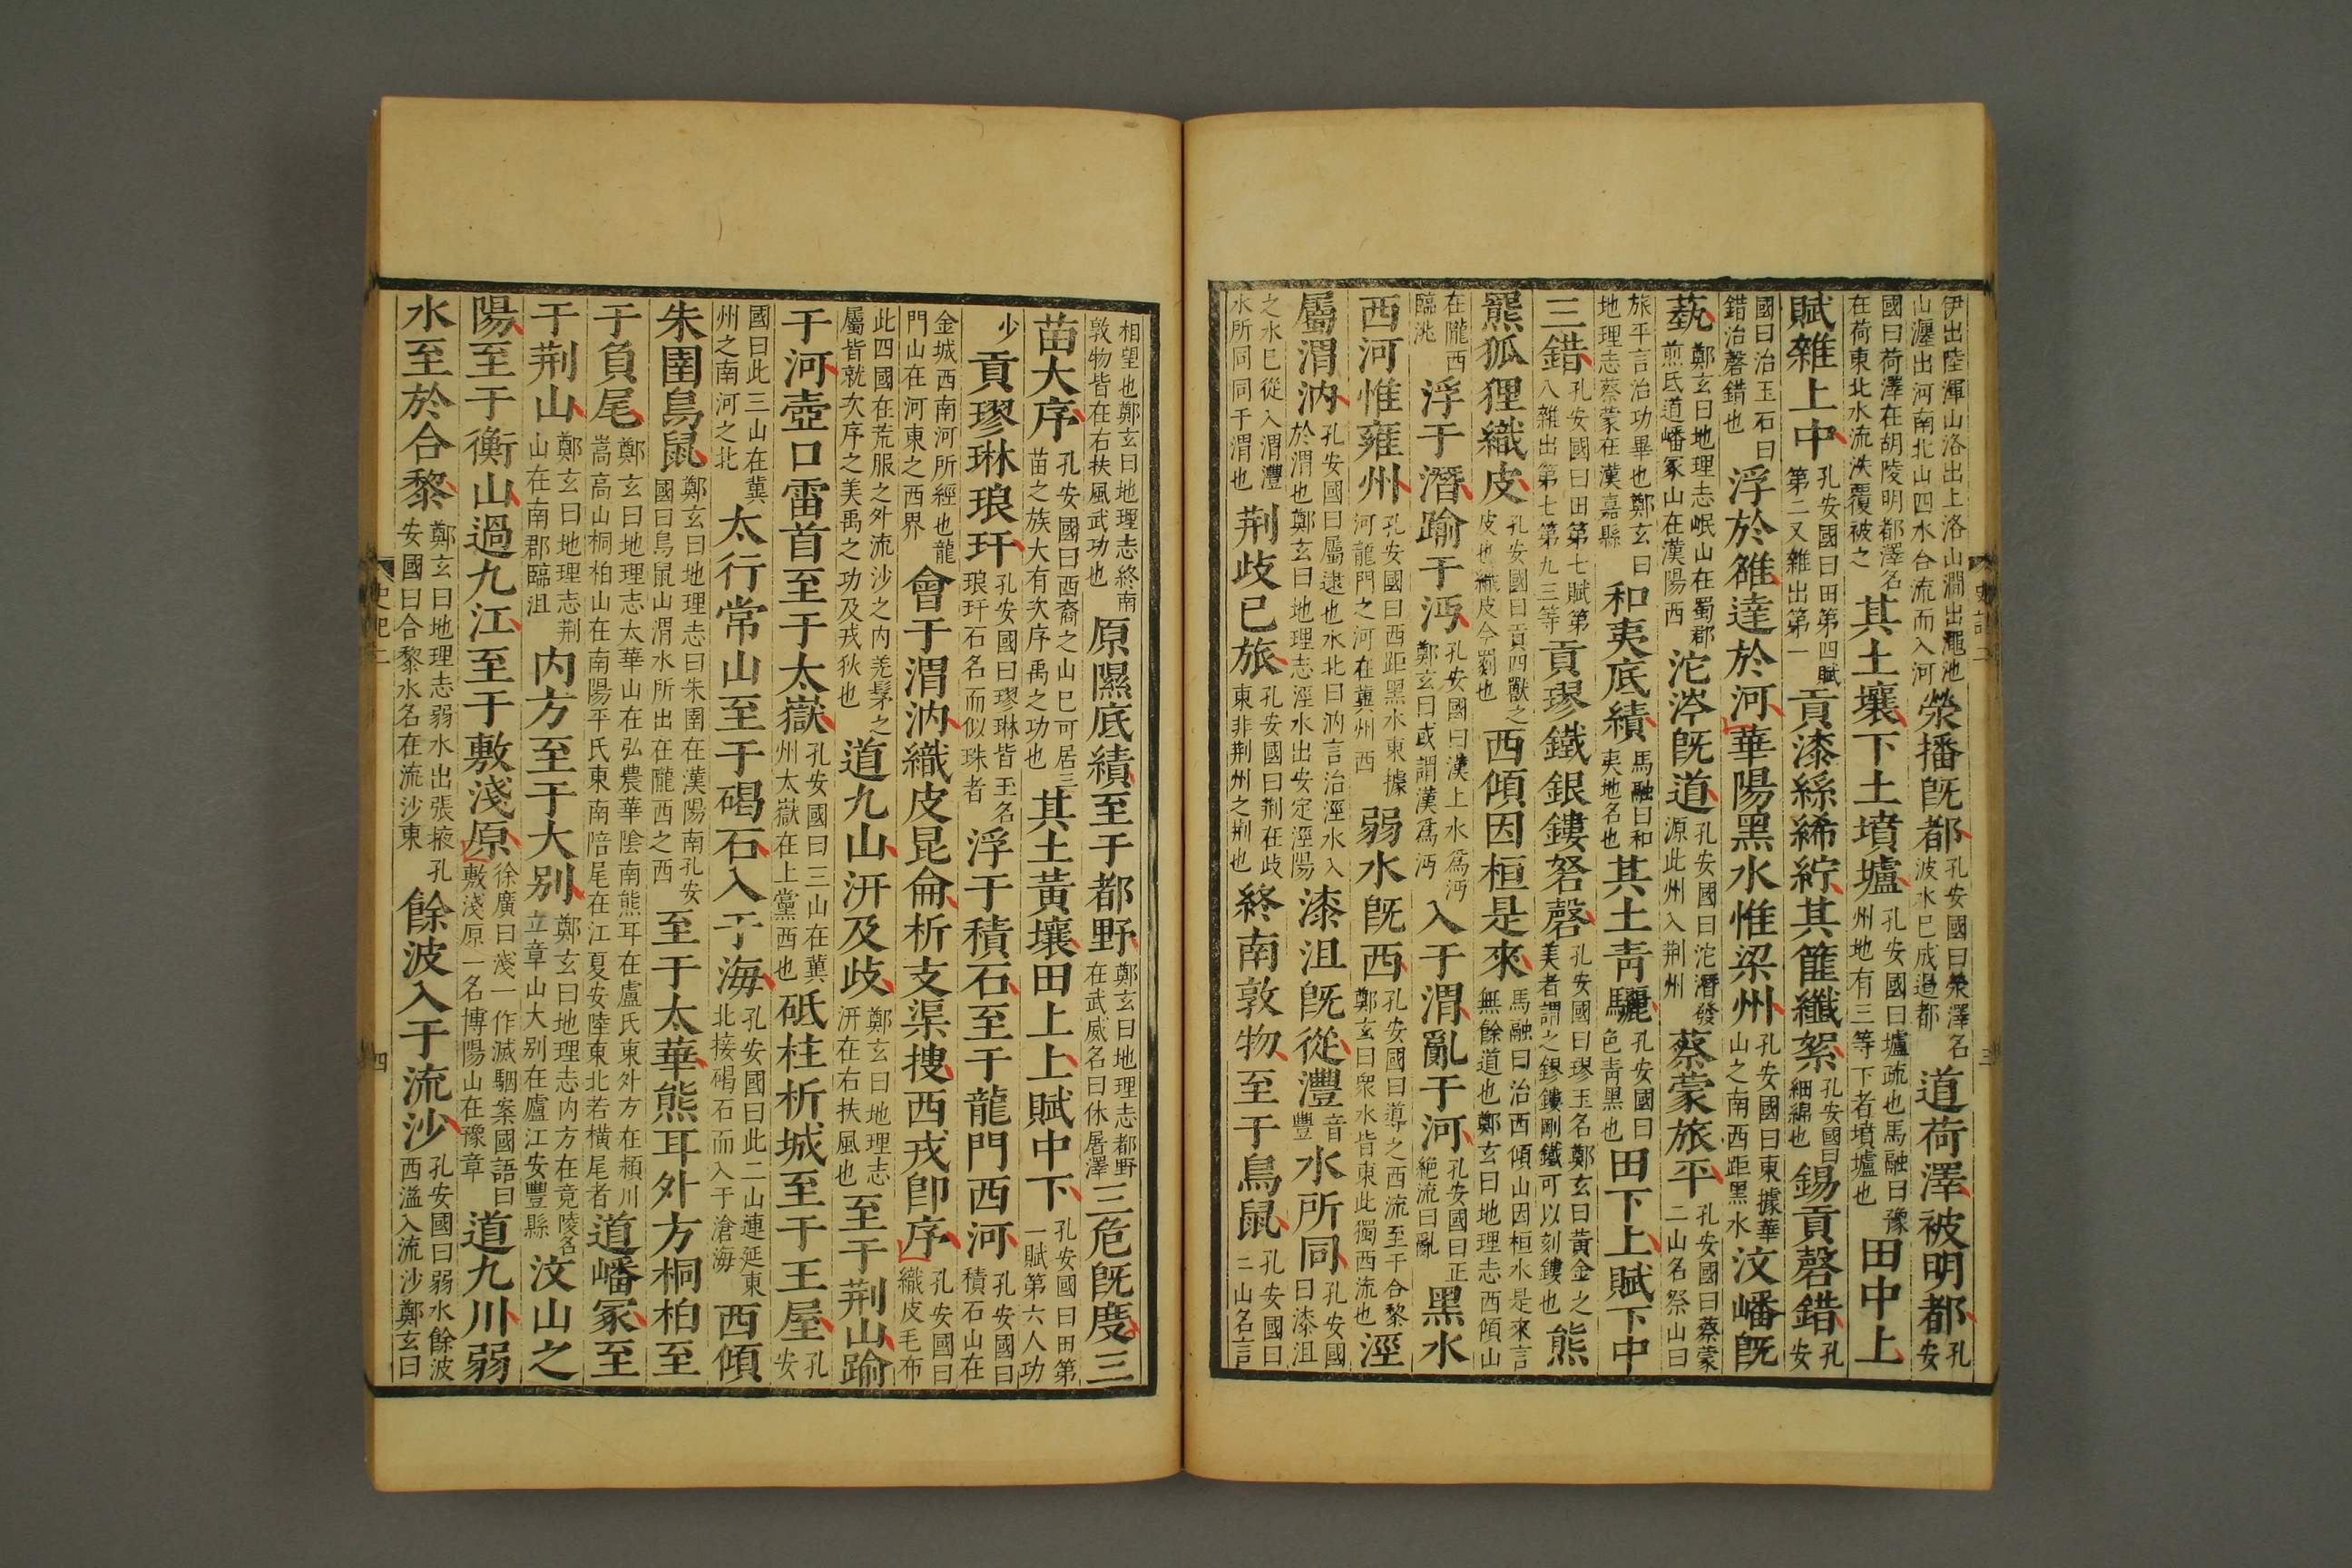 伊出陸渾山洛出上洛山澗出澠池山瀍出河南北山四水合流而入河滎播旣都孔安國曰滎澤名波水已成遏都道荷澤被明都孔安
國曰荷澤在胡陵明都澤名在荷東北水流泆覆被之其土壤下土墳壚孔安國曰壚疏也馬融曰豫州地有三等下者墳壚也田中上
賦雜上中孔安國曰田第四賦第二又雜出第一貢漆絲絺紵其篚纖絮孔安國曰細綿也錫貢磬錯孔安
國曰治玉石曰錯治磬錯也浮於雒達於河華陽黑水惟梁州孔安國曰東據華山之南西距黑水汶嶓旣
蓺鄭玄曰地理志岷山在蜀郡煎氐道嶓冢山在漢陽西沱涔旣道孔安國曰沱潛發源此州入荆州蔡蒙旅平孔安國曰蔡蒙二山名祭山曰
旅平言治功畢也鄭玄曰地理志蔡蒙在漢嘉縣和夷底績馬融曰和夷地名也其土青驪孔安國曰色青黑也田下上賦下中
三錯孔安國曰田第七賦第八雜出第七第九三等貢璆鐵銀鏤砮磬孔安國曰璆玉名鄭玄曰黃金之美者謂之鏐鏤剛鐵可以刻鏤也熊
羆狐狸織皮孔安國曰貢四獸之皮也織皮今罽也西傾因桓是來馬融曰治西傾山因桓水是來言無餘道也鄭玄曰地理志西傾山
在隴西臨洮浮于潛踰于沔孔安國曰漢上水爲沔鄭玄曰或謂漢爲沔入于渭亂于河孔安國曰正絶流曰亂黑水
西河惟雍州孔安國曰西距黑水東據河龍門之河在冀州西弱水旣西孔安國曰導之西流至于合黎鄭玄曰衆水皆東此獨西流也涇
屬渭汭孔安國曰屬逮也水北曰汭言治涇水入於渭也鄭玄曰地理志涇水出安定涇陽漆沮旣從灃音豐水所同孔安國曰漆沮
之水已從入渭灃水所同同于渭也荆歧已旅孔安國曰荆在歧東非荆州之荆也終南敦物至于鳥鼠孔安國曰三山名言
相望也鄭玄曰地理志終南敦物皆在右扶風武功也原隰底績至于都野鄭玄曰地理志都野在武威名曰休屠澤三危旣度三
苗大序孔安國曰西裔之山已可居三苗之族大有次序禹之功也其土黃壤田上上賦中下孔安國曰田第一賦第六人功
少貢璆琳琅玕孔安國曰璆琳皆玉名琅玕石名而似珠者浮于積石至于龍門西河孔安國曰積石山在
金城西南河所經也龍門山在河東之西界會于渭汭織皮昆侖析支渠搜西戎卽序孔安國曰織皮毛布
此四國在荒服之外流沙之内羌髳之屬皆就次序之美禹之功及戎狄也道九山汧及歧鄭玄曰地理志汧在右扶風也至于荆山踰
于河壺口雷首至于太嶽孔安國曰三山在冀州太嶽在上黨西也砥柱析城至于王屋孔安
國曰此三山在冀州之南河之北太行常山至于碣石入于海孔安國曰此二山連延東北接碣石而入于滄海西傾
朱圉鳥鼠鄭玄曰地理志曰朱圉在漢陽南孔安國曰鳥鼠山渭水所出在隴西之西至于太華熊耳外方桐柏至
于負尾鄭玄曰地理志太華山在弘農華陰南熊耳在盧氏東外方在潁川嵩高山桐柏山在南陽平氏東南陪尾在江夏安陸東北若橫尾者道嶓冢至
于荆山鄭玄曰地理志荆山在南郡臨沮内方至于大别鄭玄曰地理志内方在竟陵名立章山大别在廬江安豐縣汶山之
陽至于衡山過九江至于敷淺原徐廣曰淺一作滅駰案國語曰敷淺原一名博陽山在豫章道九川弱
水至於合黎鄭玄曰地理志弱水出張掖孔安國曰合黎水名在流沙東餘波入于流沙孔安國曰弱水餘波西溢入流沙鄭玄曰
史記二
三
史記二
四